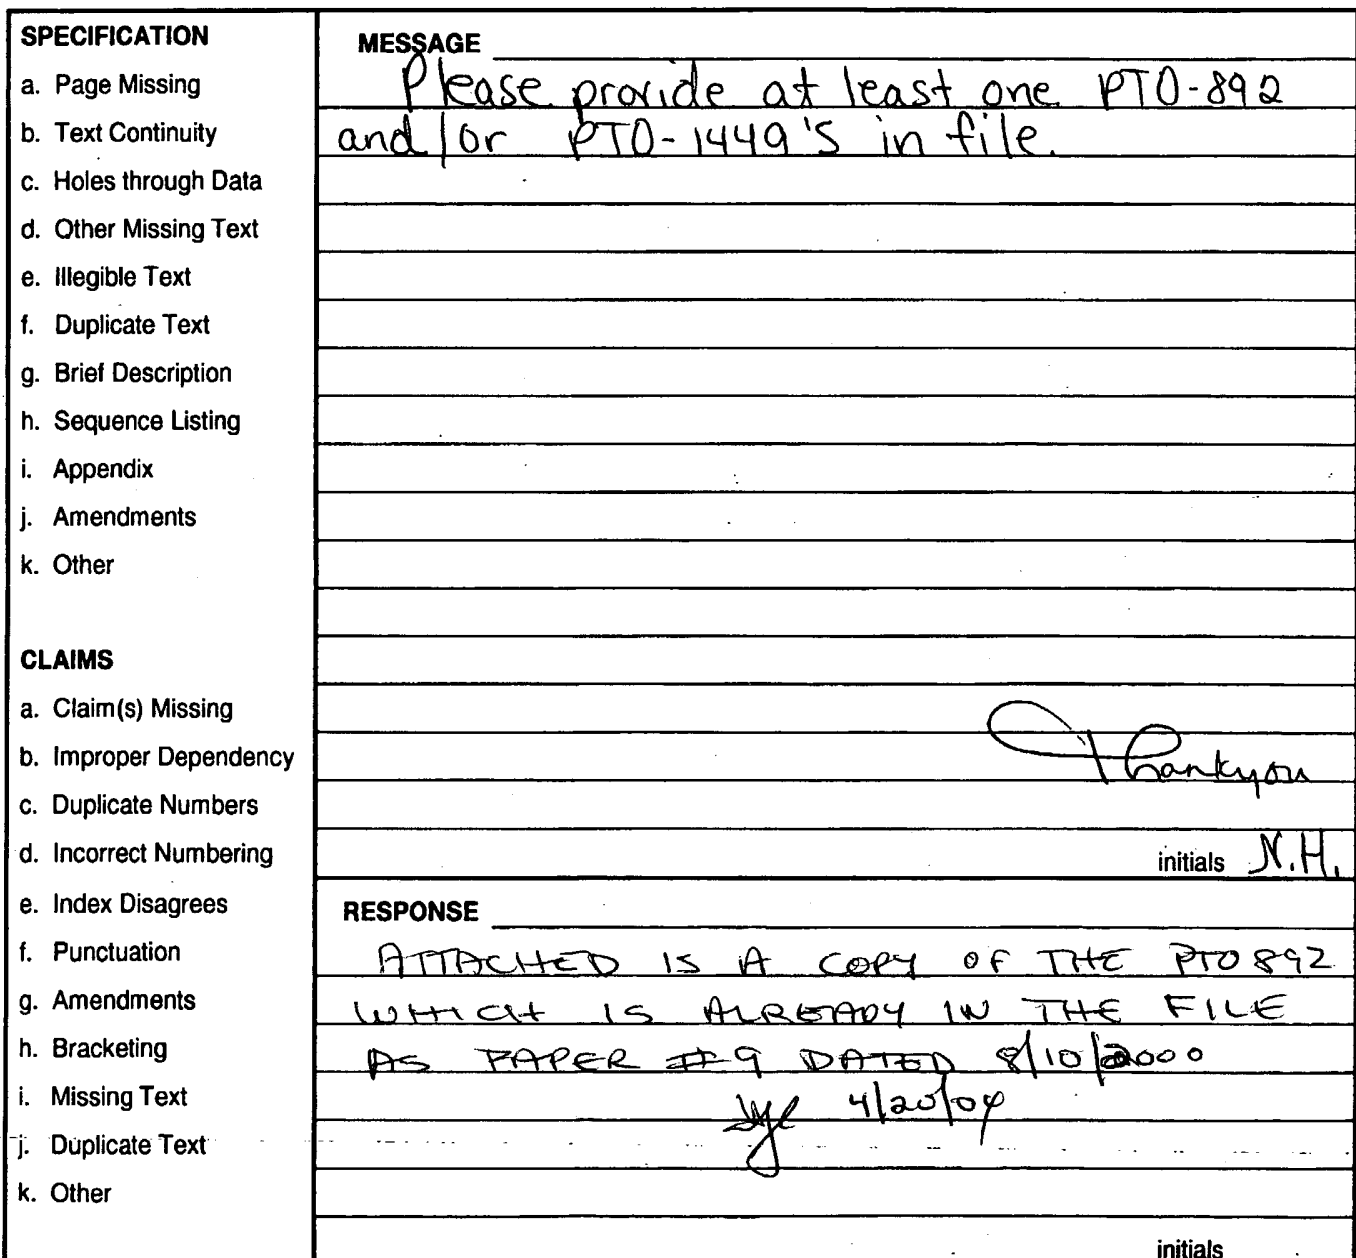 SPECIFICATION
a. Page Missing
b. Text Continuity
c. Holes through Data
d. Other Missing Text
e. Illegible Text
f. Duplicate Text
g. Brief Description
h. Sequence Listing
i. Appendix
j. Amendments
k. Other
CLAIMS
a. Claim(s) Missing
b. Improper Dependency
c. Duplicate Numbers
d. Incorrect Numbering
e. Index Disagrees
f. Punctuation
g. Amendments
h. Bracketing
i. Missing Text
j. Duplicate Text
k. Other
MESSAGE
Please provide at least one PTO-892
and/or PTO-1449's in file.
Thankyou
initials N.H.
RESPONSE
ATTACHED IS A COPY OF THE PTO 892
WHICH IS ALREADY IN THE FILE
AS PAPER #9 DATED 8/10/2000
4/20/04
initials